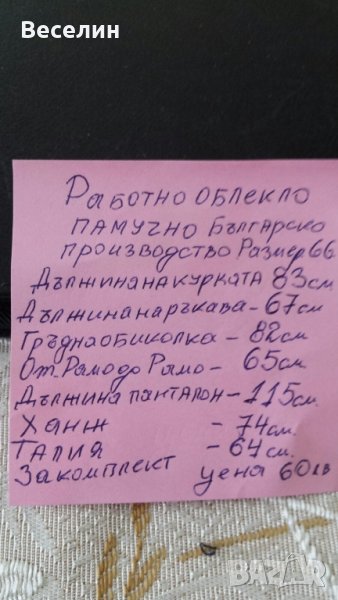 Веселин
Работно облекло
памучно Българско
производство Размер 66
Дължина на курката 83см
Дължина на ръкава - 67см
Гръдна обиколка - 82см
От Рамо до Рамо - 65см
Дължина панталон - 115см.
Ханж - 74см.
Талия - 64см.
За комплект цена 60лв
BAZAR